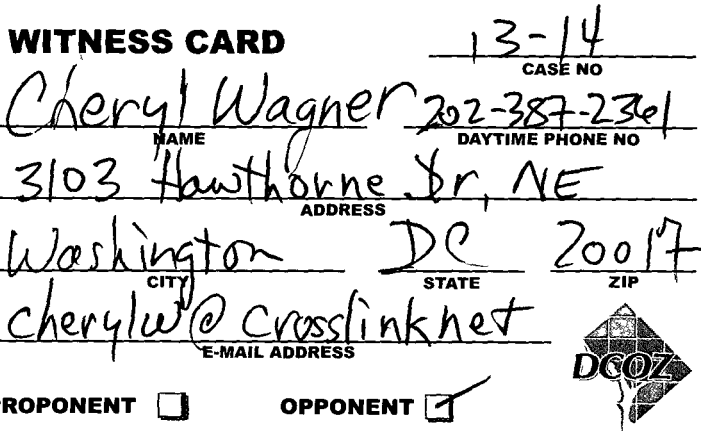 WITNESS CARD 13-14
CASE NO
Cheryl Wagner 202-387-2361
NAME DAYTIME PHONE NO
3103 Hawthorne Dr, NE
ADDRESS
Washington DC 20017
CITY STATE ZIP
cherylw@crosslinknet
E-MAIL ADDRESS
DCOZ
ROPONENT OPPONENT